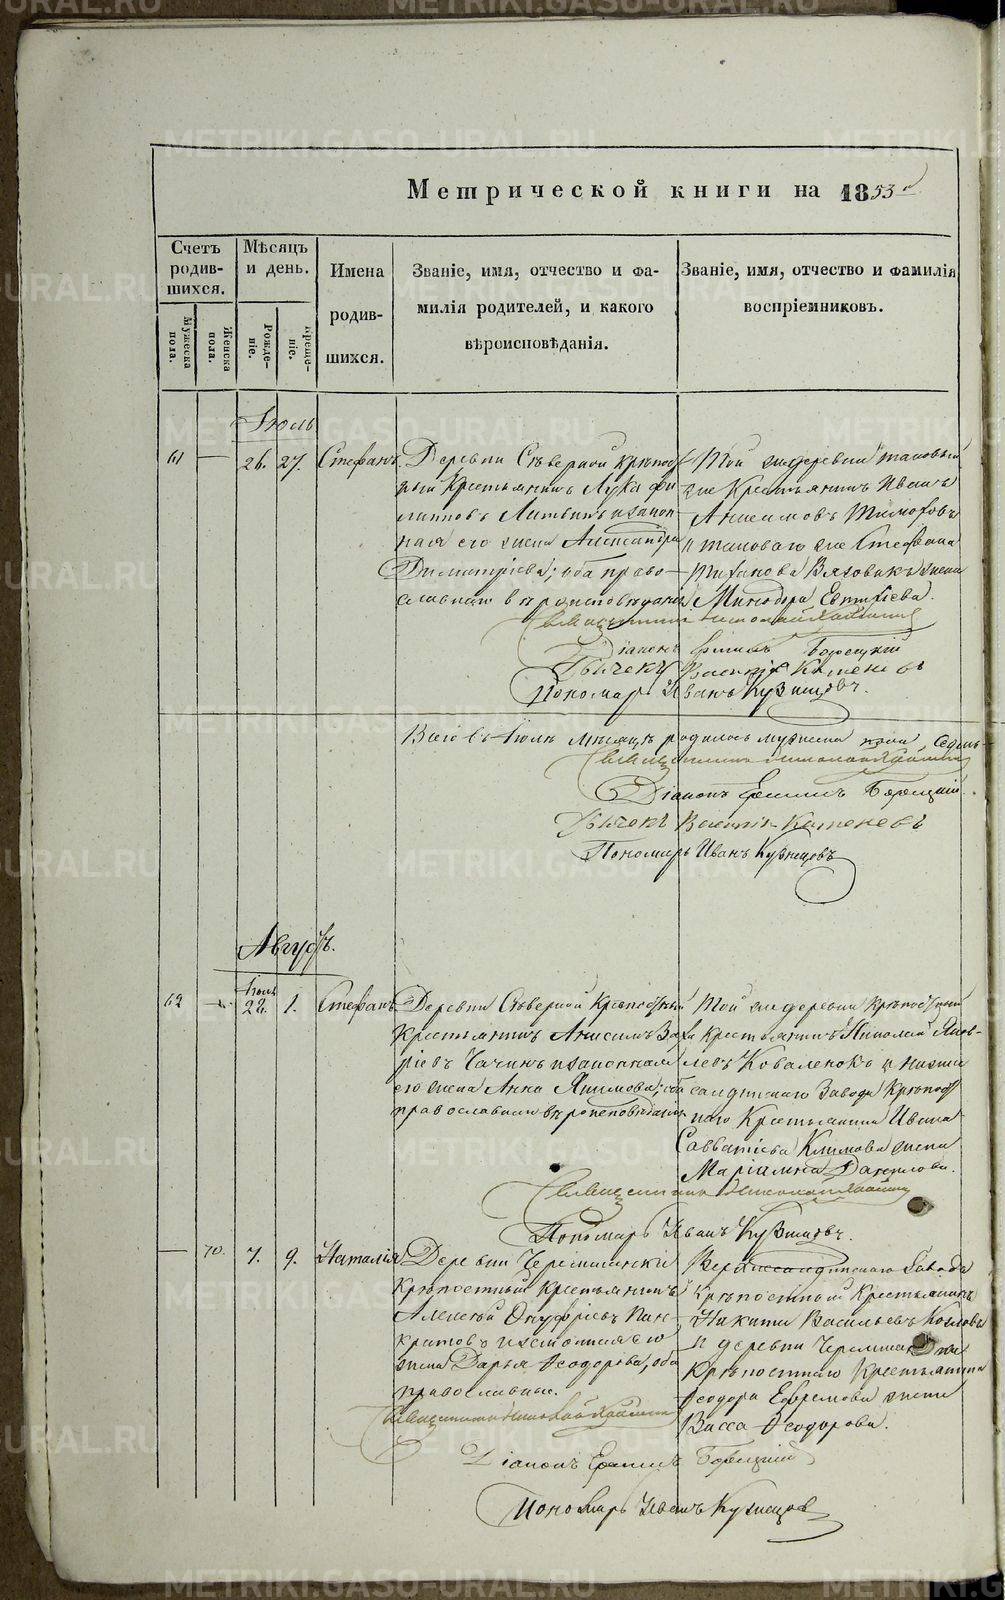 Метрической книги на 1853й
Счетъ родившихся.
Мужеска пола.
Женска пола.
Мѣсяцъ и день.
Рожденіе.
Крещеніе.
Имена
родив-
шихся.
Званіе, имя, отчество и фа-
милія родителей, и какого
вѣроисповѣданія.
Званіе, имя, отчество и фамилія
воспріемниковъ.
Іюль
61 — 26. 27. Стефанъ.
Деревни Сѣверной крѣпост-
ный Крестьянинъ Лука Фи-
липповъ Литвинъ и закон-
ная его жена Александра
Димитріева; оба право-
славнаго вѣроисповѣданія
Той же деревни таковый
же Крестьянинъ Иванъ
Анисимовъ Тимофовъ
и таковаго же Стефана
жена
Минодора Евтифіева.
Священникъ Николай
Діаконъ Ермилъ Борецкій
Дьячекъ Василій Катеневъ
Пономарь Иванъ Кузнецовъ.
Всего въ Іюлѣ мѣсяцѣ родилось мужеска пола седмь
Священникъ Николай
Діаконъ Ермилъ Борецкій.
Дьячекъ Василій Катеневъ
Пономарь Иванъ Кузнецовъ
Августъ.
Іюль
62 — 22. 1. Стефанъ.
Деревни Сѣверной Крѣпостный
Крестьянинъ Анисимъ Заха-
ріевъ Чачинъ и законная
его жена Анна Якимова; оба
православнаго вѣроисповѣданія
Той же деревни крѣпостный
крестьянинъ Николай Яков-
левъ Коваленокъ и Нижне
салдинскаго Завода Крѣпост
наго Крестьянина Ивана
Савватіева Климова жена
Маріамна Данилова.
Священникъ Николай
Пономарь Иванъ Кузнецовъ.
— 70. 7. 9. Наталія
Деревни Черемшанки
Крѣпостный крестьянинъ
Алексѣй Онуфріевъ Пан-
кратовъ и законная его
жена Дарья Ѳеодорова, оба
православные.
Верхнесалдинскаго Завода
Крѣпостный Крестьянинъ
Никита Васильевъ Козловъ
и деревни Черемшанки
Крѣпостнаго Крестьянина
Ѳеодора Ефремова жена
Васса Ѳеодорова.
Священникъ Николай
Діаконъ Ермилъ Борецкій
Пономарь Иванъ Кузнецовъ
METRIKI.GASO-URAL.RU